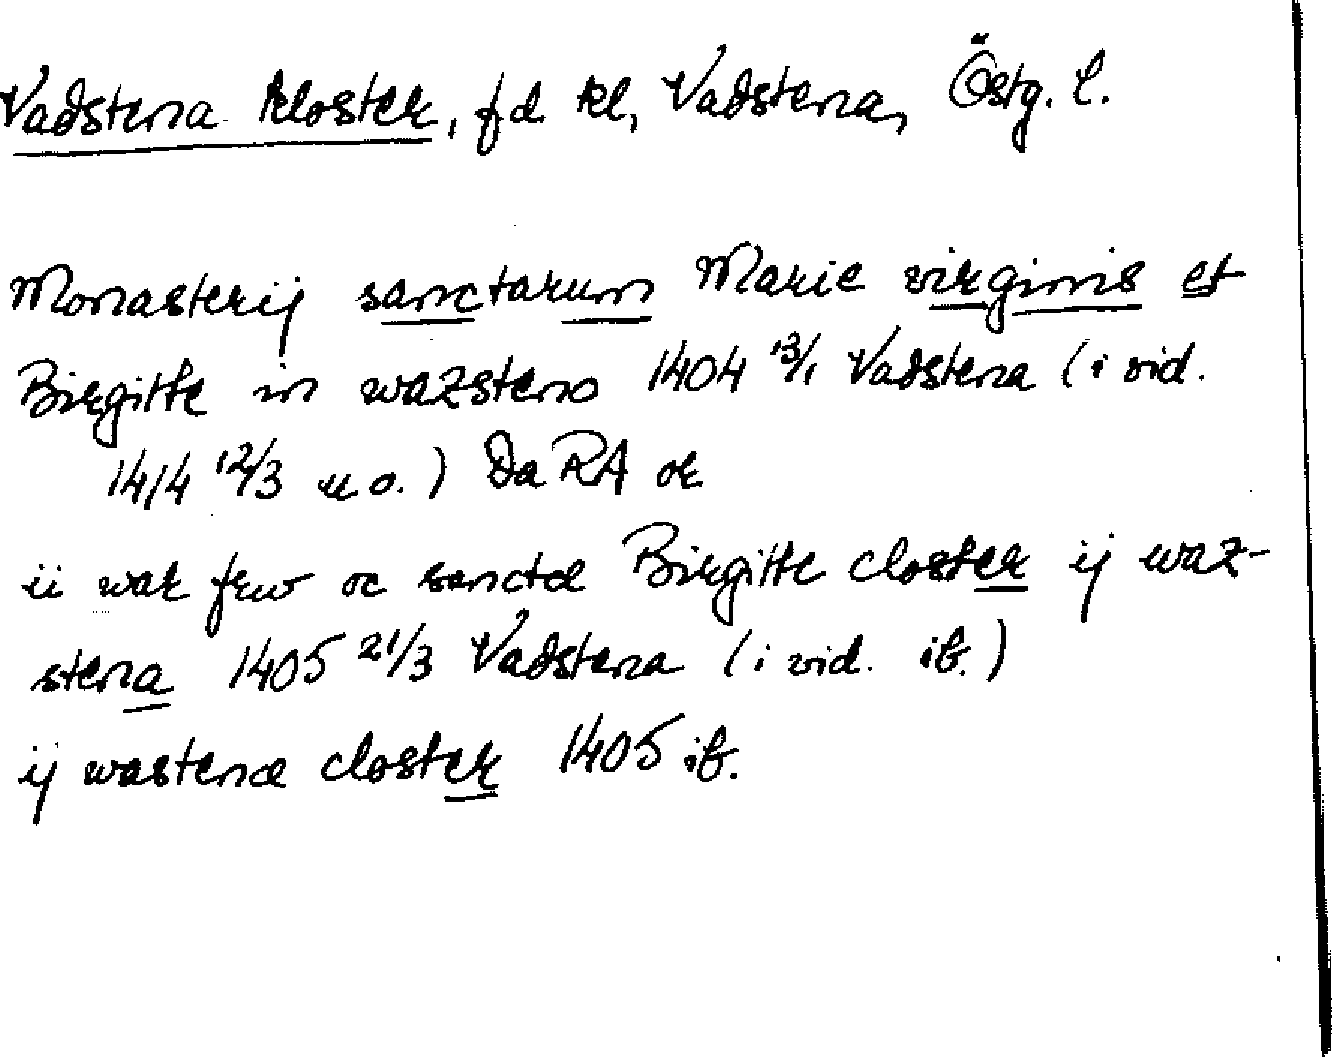 Vadstena kloster, f.d. kl, Vadstena, Östg. l.
Monasterij sanctarum Marie virginis et
Birgitte in wazsteno 1404 13/1 Vadstena (i vid.
1414 12/3 u o.) Da RA or
ii war frw oc sancta Birgitte closter ij waz-
stena 1405 21/3 Vadstena (i vid. ib.)
ij wastena closter 1405 ib.